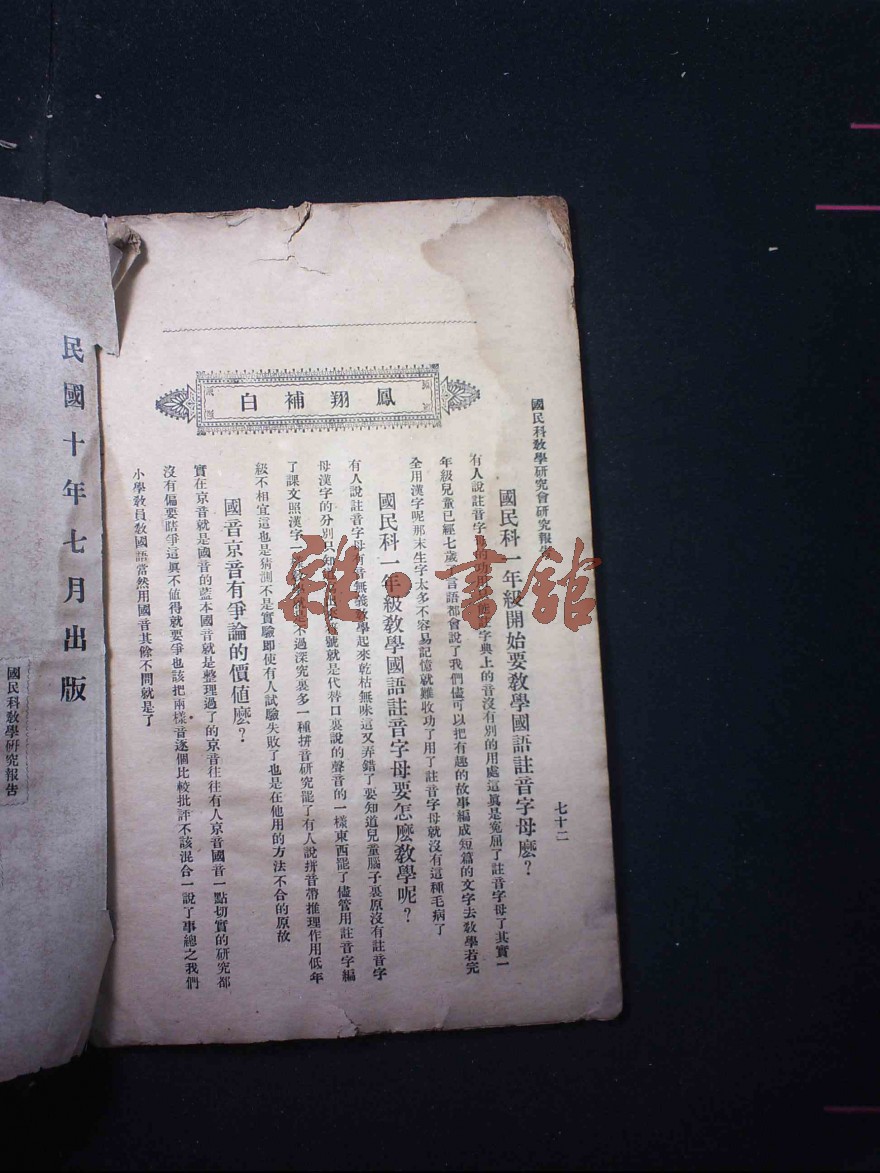 國民科教學研究會研究報告
七十二
鳳翔補白
國民科一年級開始要教學國語註音字母麽？
有人說註音字母的功用只能註字典上的音沒有別的用處這眞是寃屈了註音字母了其實一
年級兒童已經七歲了言語都會說了我們儘可以把有趣的故事編成短篇的文字去教學若完
全用漢字呢那末生字太多不容易記憶就難收功了用了註音字母就沒有這種毛病了
國民科一年級教學國語註音字母要怎麽教學呢？
有人說註音字母有音無義教學起來乾枯無味這又弄錯了要知道兒童腦子裏原沒有註音字
母漢字的分別只知 號就是代替口裏說的聲音的一樣東西罷了儘管用註音字編
了課文照漢字一 不過深究裏多一種拼音研究罷了有人說拼音帶推理作用低年
級不相宜這也是猜測不是實驗即使有人試驗失敗了也是在他用的方法不合的原故
國音京音有爭論的價値麽？
實在京音就是國音的藍本國音就是整理過了的京音往往有人京音國音一點切實的研究都
沒有偏要瞎爭這眞不値得就要爭也該把兩樣音逐個比較批評不該混合一說了事總之我們
小學教員教國語當然用國音其餘不問就是了
民國十年七月出版
國民科教學研究報告
雜·書館